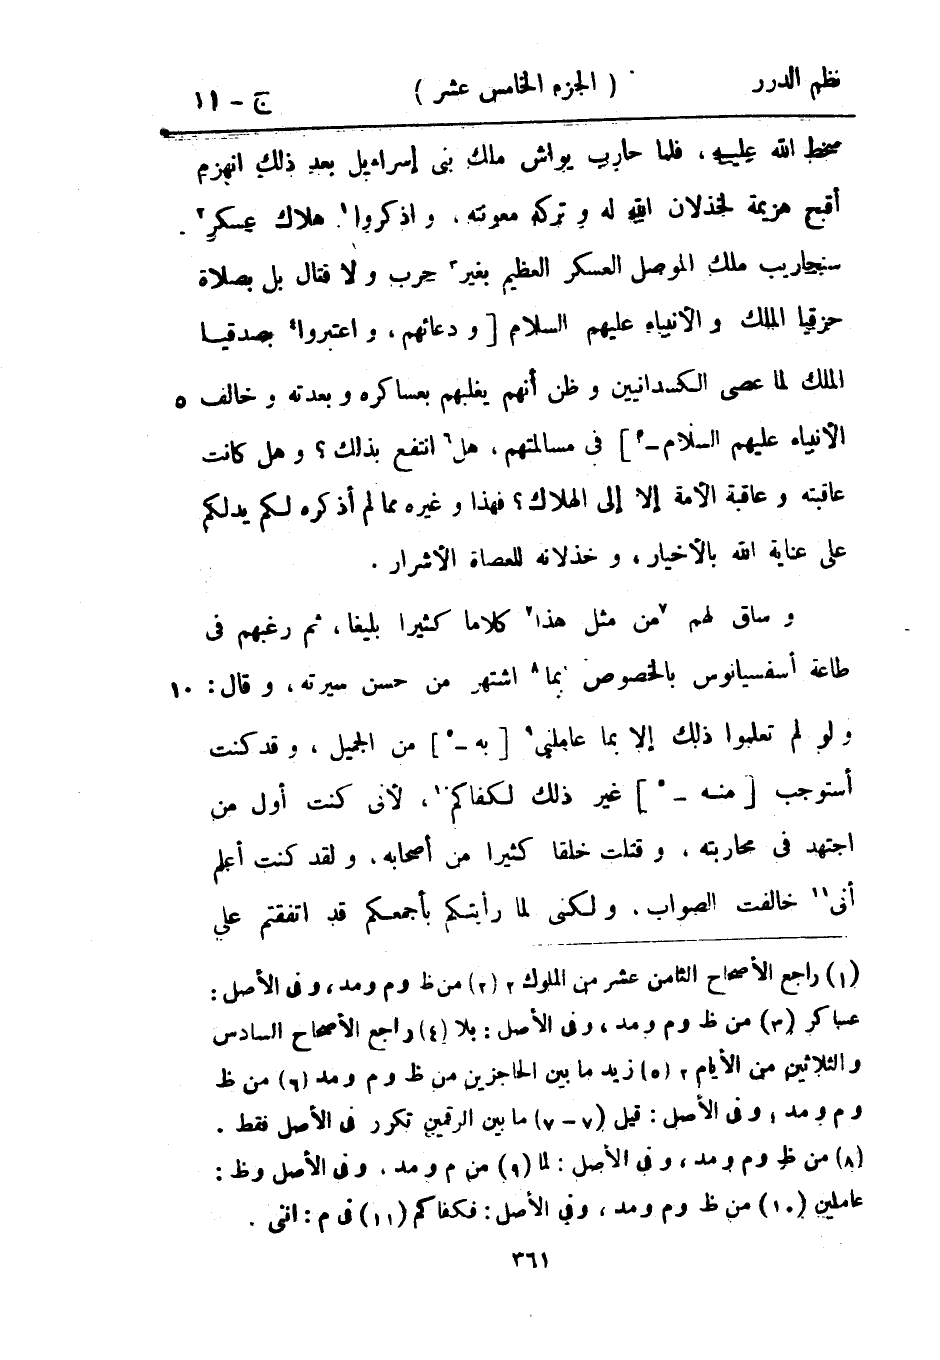 نظم الدرر ( الجزء الخامس عشر ) ج - ١١
سخط الله عليه ، فلما حارب يواش ملك بنى إسراءيل بعد ذلك انهزم
أقبح هزيمة لخذلان الله له و تركه معونته ، و اذكروا١ هلاك عسكر٢
سنجاريب ملك الموصل العسكر العظيم بغير٣ حرب و لا قتال بل بصلاة
حزقيا الملك و الأنبياء عليهم السلام [ و دعائهم ، و اعتبروا٤ بصدقيا
الملك لما عصى الكسدانيين و ظن أنهم يغلبهم بعساكره و بعدته و خالف ٥
الأنبياء عليهم السلام -٥ ] فى مسالمتهم ، هل٦ انتفع بذلك ؟ و هل كانت
عاقبته و عاقبة الأمة إلا إلى الهلاك ؟ فهذا و غيره مما لم أذكره لكم يدلكم
على عناية الله بالأخيار ، و خذلانه للعصاة الأشرار .
و ساق لهم ٧من مثل هذا٧ كلاما كثيرا بليغا ، ثم رغبهم فى
طاعة أسفسيانوس بالخصوص بما٨ اشتهر من حسن سيرته ، و قال : ١٠
و لو لم تعلموا ذلك إلا بما عاملنى٩ [ به -٥ ] من الجميل ، و قد كنت
أستوجب [ منه -٥ ] غير ذلك لكفاكم١٠ ، لأنى كنت أول من
اجتهد فى محاربته ، و قتلت خلقا كثيرا من أصحابه ، و لقد كنت أعلم
أنى١١ خالفت الصواب . و لكنى لما رأيتكم بأجمعكم قد اتفقتم على
(١) راجع الأصحاح الثامن عشر من الملوك ٢ (٢) من ظ و م و مد ، و فى الأصل :
عساكر (٣) من ظ و م و مد ، و فى الأصل : بلا (٤) راجع الأصحاح السادس
و الثلاثين من الأيام ٢ (٥) زيد ما بين الحاجزين من ظ و م و مد (٦) من ظ
و م و مد ، و فى الأصل : قيل (٧ - ٧) ما بين الرقمين تكرر فى الأصل فقط .
(٨) من ظ و م و مد ، و فى الأصل : لما (٩) من م و مد ، و فى الأصل و ظ :
عاملين (١٠) من ظ و م و مد ، و فى الأصل : فكفاكم (١١) فى م : اننى .
٣٦١